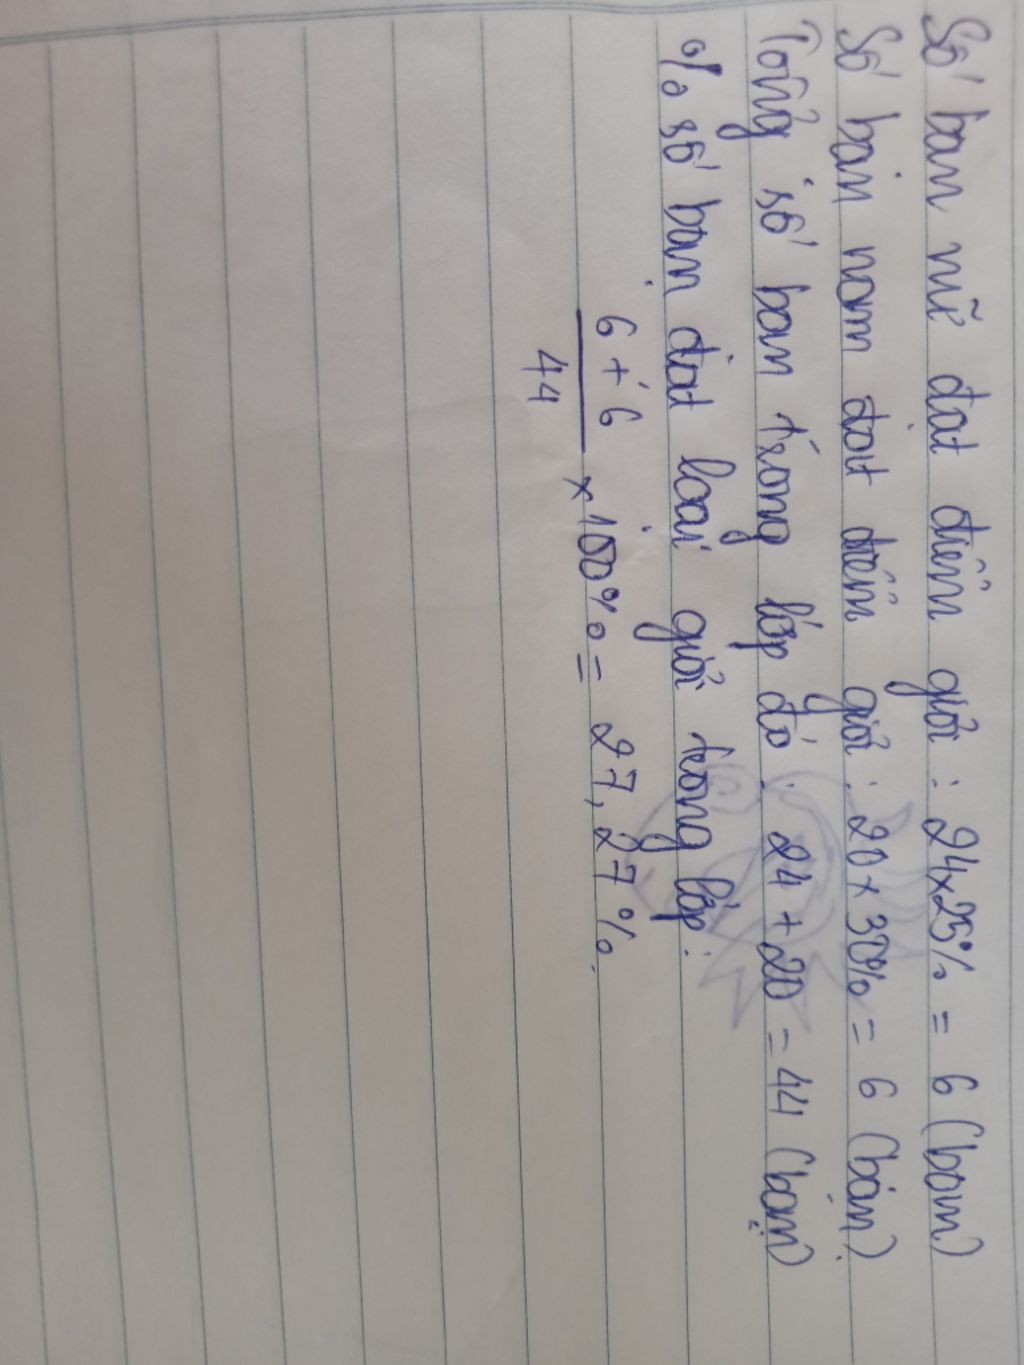 Số bạn nữ đạt điểm giỏi : 24 x 25% = 6 (bạn)
Số bạn nam đạt điểm giỏi : 20 x 30% = 6 (bạn)
Tổng số bạn trong lớp đó : 24 + 20 = 44 (bạn)
% số bạn đạt loại giỏi trong lớp :
6 + 6
44
x 100% = 27,27%.